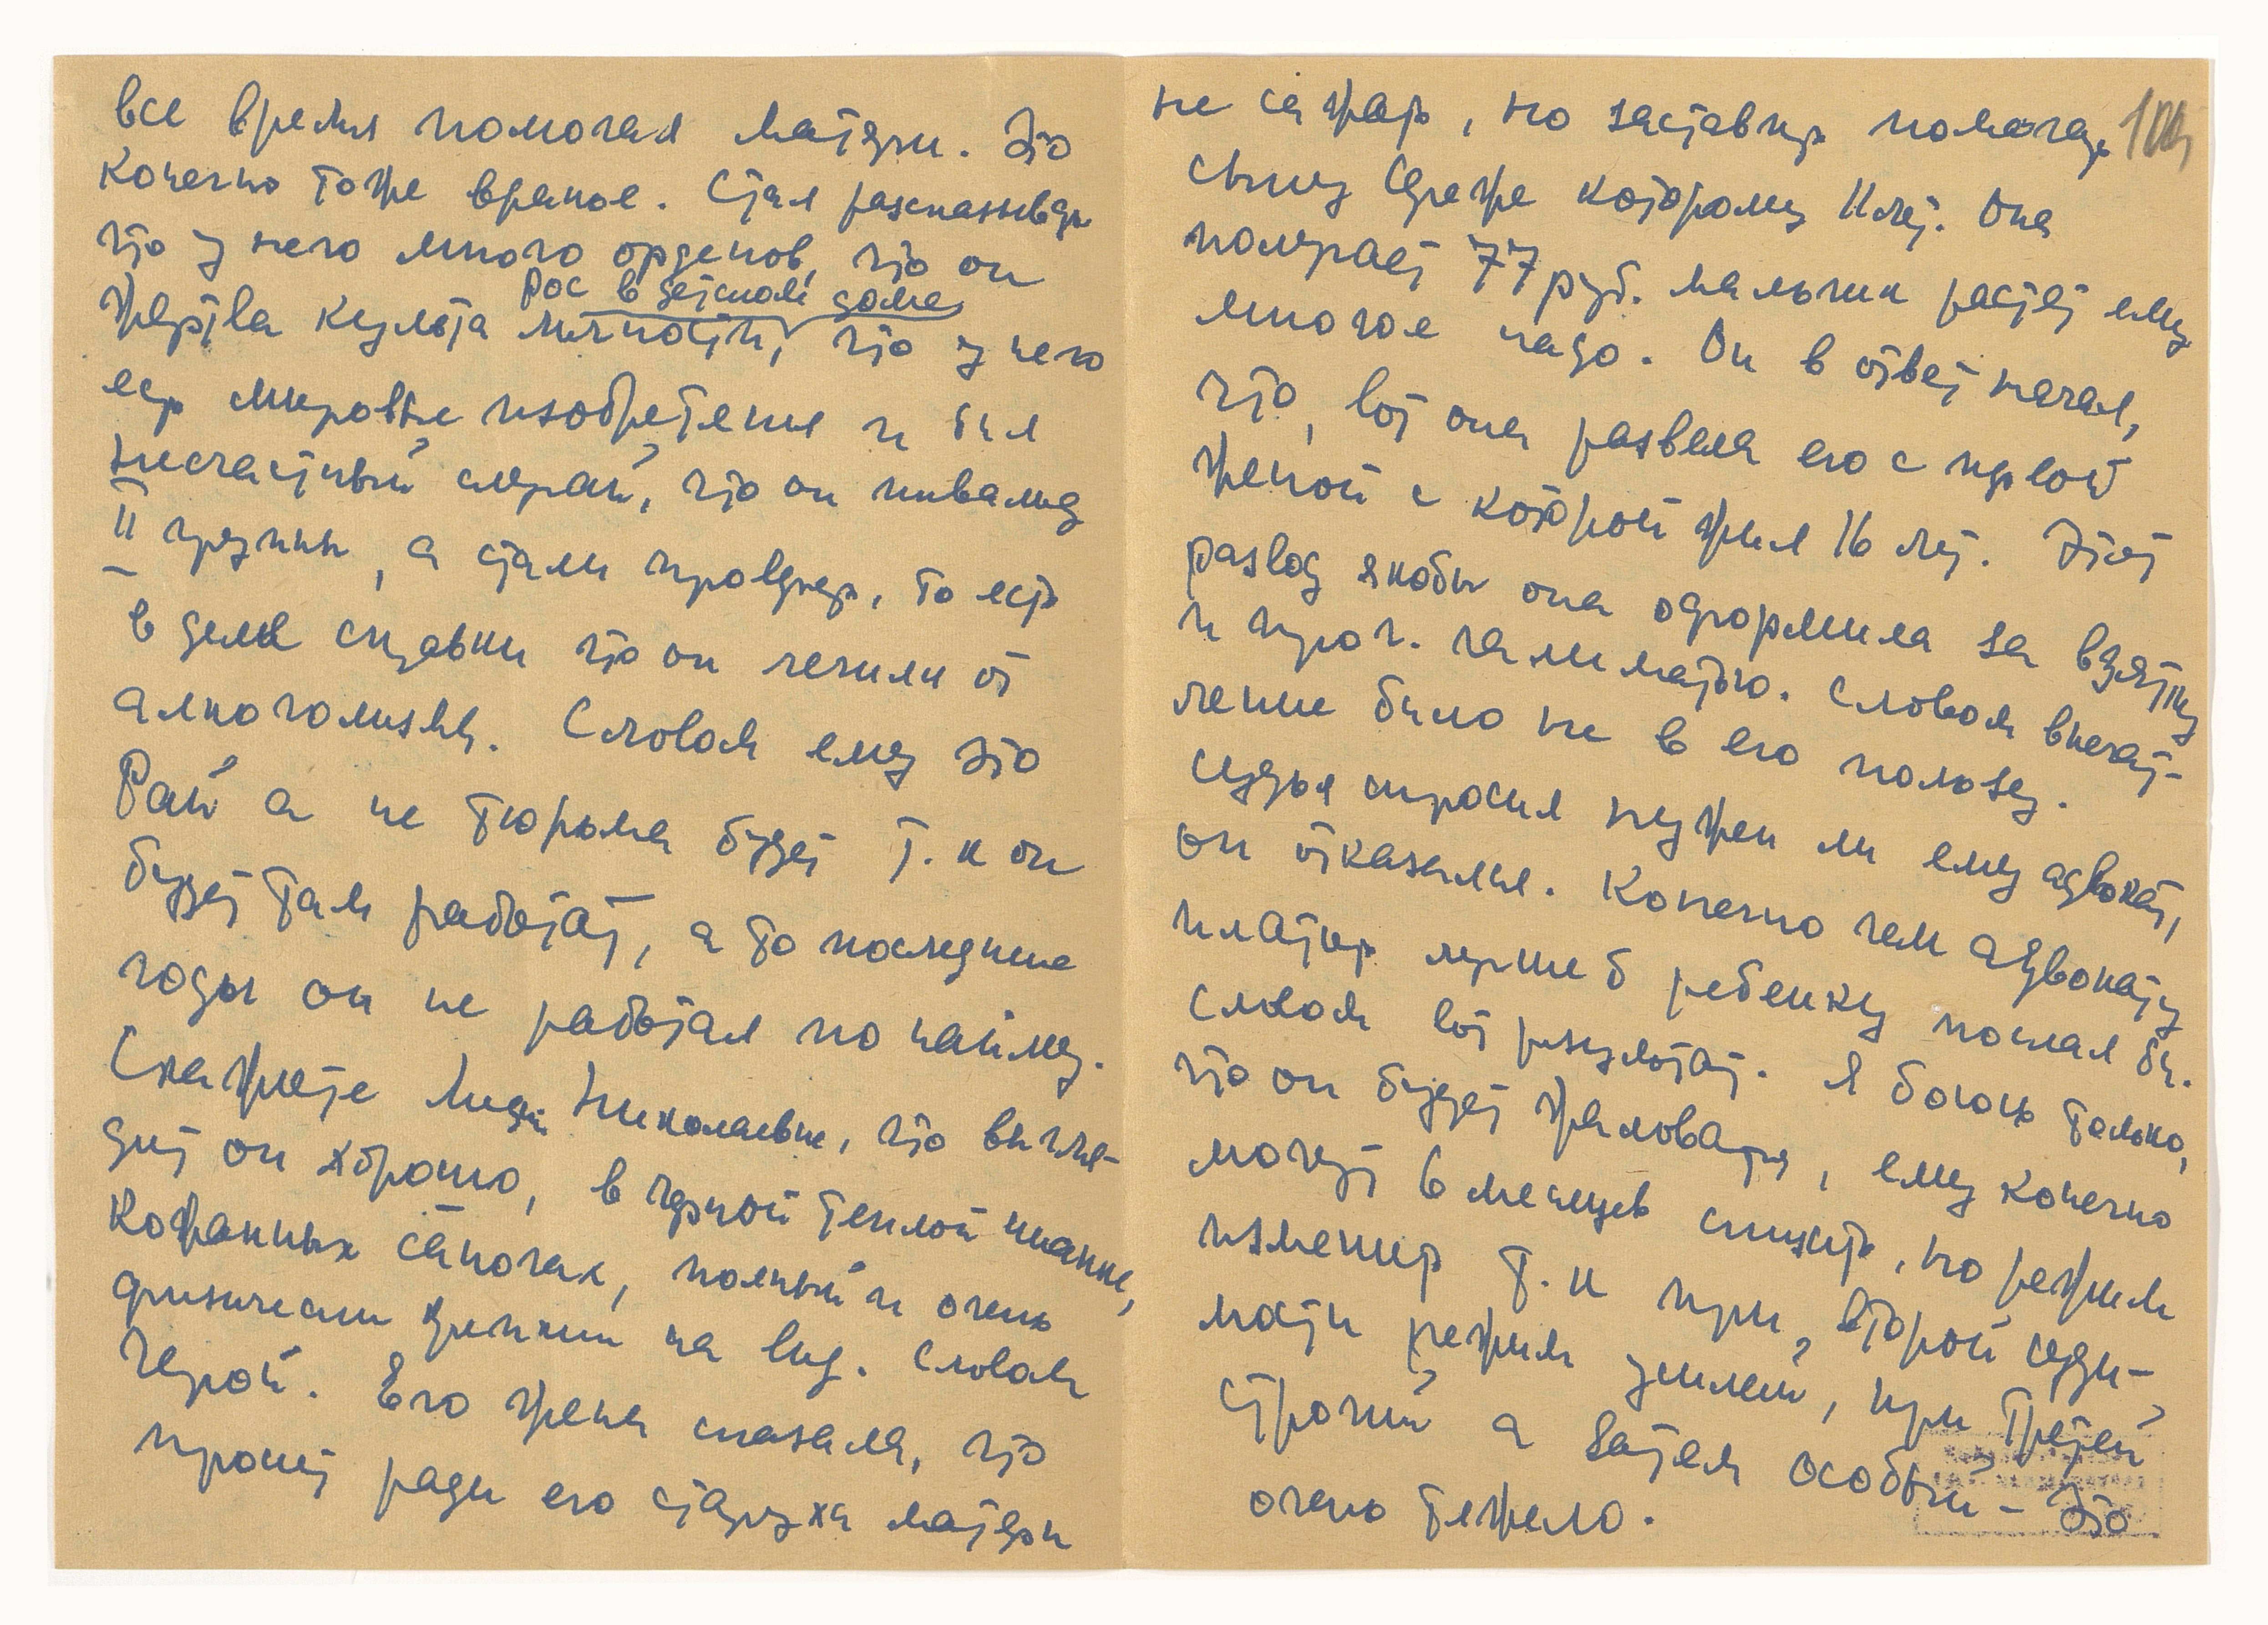 все время помогал матери. Это
конечно тоже вранье. Стал рассказывать
что у него много орденов, что он
рос в детском доме
жертва культа личности, что у него
есть мировые изобретения и был
несчастный случай, что он инвалид
II группы, а стали проверять, то есть
в деле справки что он лечили от
алкоголизма. Словом ему это
Рай а не тюрьма будет т.к он
будет там работат, а то последние
годы он не работал по найму.
Скажите Лидии Николаевне, что выгля-
дит он хорошо, в черной теплой шапке,
кожанных сапогах, полный и очень
физически крепкий на вид. Словом
Герой. Его жена сказала, что
просит ради его старухи матери
не сажать, но заставить помогать
сыну Сереже которому 11 лет. Она
получает 77 руб. мальчик растет ему
многое надо. Он в ответ начал,
что, вот она развела его с первой
женой с которой жил 16 лет. Этот
развод якобы она оформила за взятку
и проч. галиматью. Словом впечат-
ление было не в его пользу.
Судья спросил нужен ли ему адвокат,
он отказался. Конечно чем адвокату
платить лучше б ребенку послал бы.
Словом вот результат. Я боюсь только,
что он будет жаловатся, ему конечно
могут 6 месяцев снизить, но режим
изменить т.к при второй суди-
мости режим усилен, при третей
строгий а затем особый – это
очень тяжело.